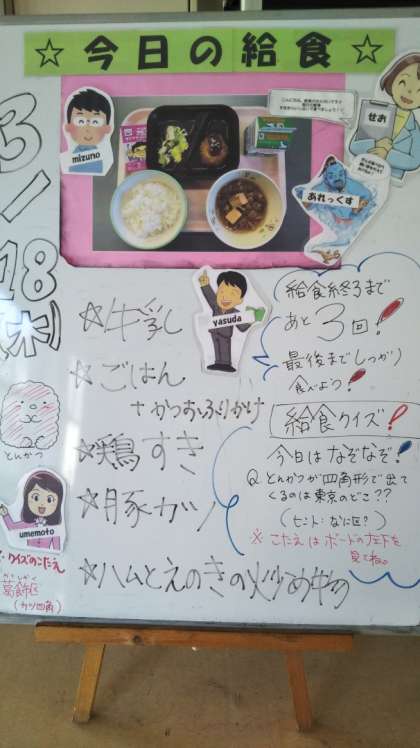 ☆今日の給食☆
3/18(木)
mizuno
せお
あれっくす
yasuda
☆牛乳
☆ごはん
+かつおふりかけ
☆鶏すき
☆豚カツ
☆ハムとえのきの炒め物
給食終了まで
あと3回!
最後までしっかり
食べよう!
給食クイズ!
今日はなぞなぞ!
Q とんかつが四角形で出て
くるのは東京のどこ??
(ヒント:なに区?)
※こたえはボードの左下を
見てね。
とんかつ
umemoto
クイズのこたえ
かつしかく
葛飾区
(カツ四角)